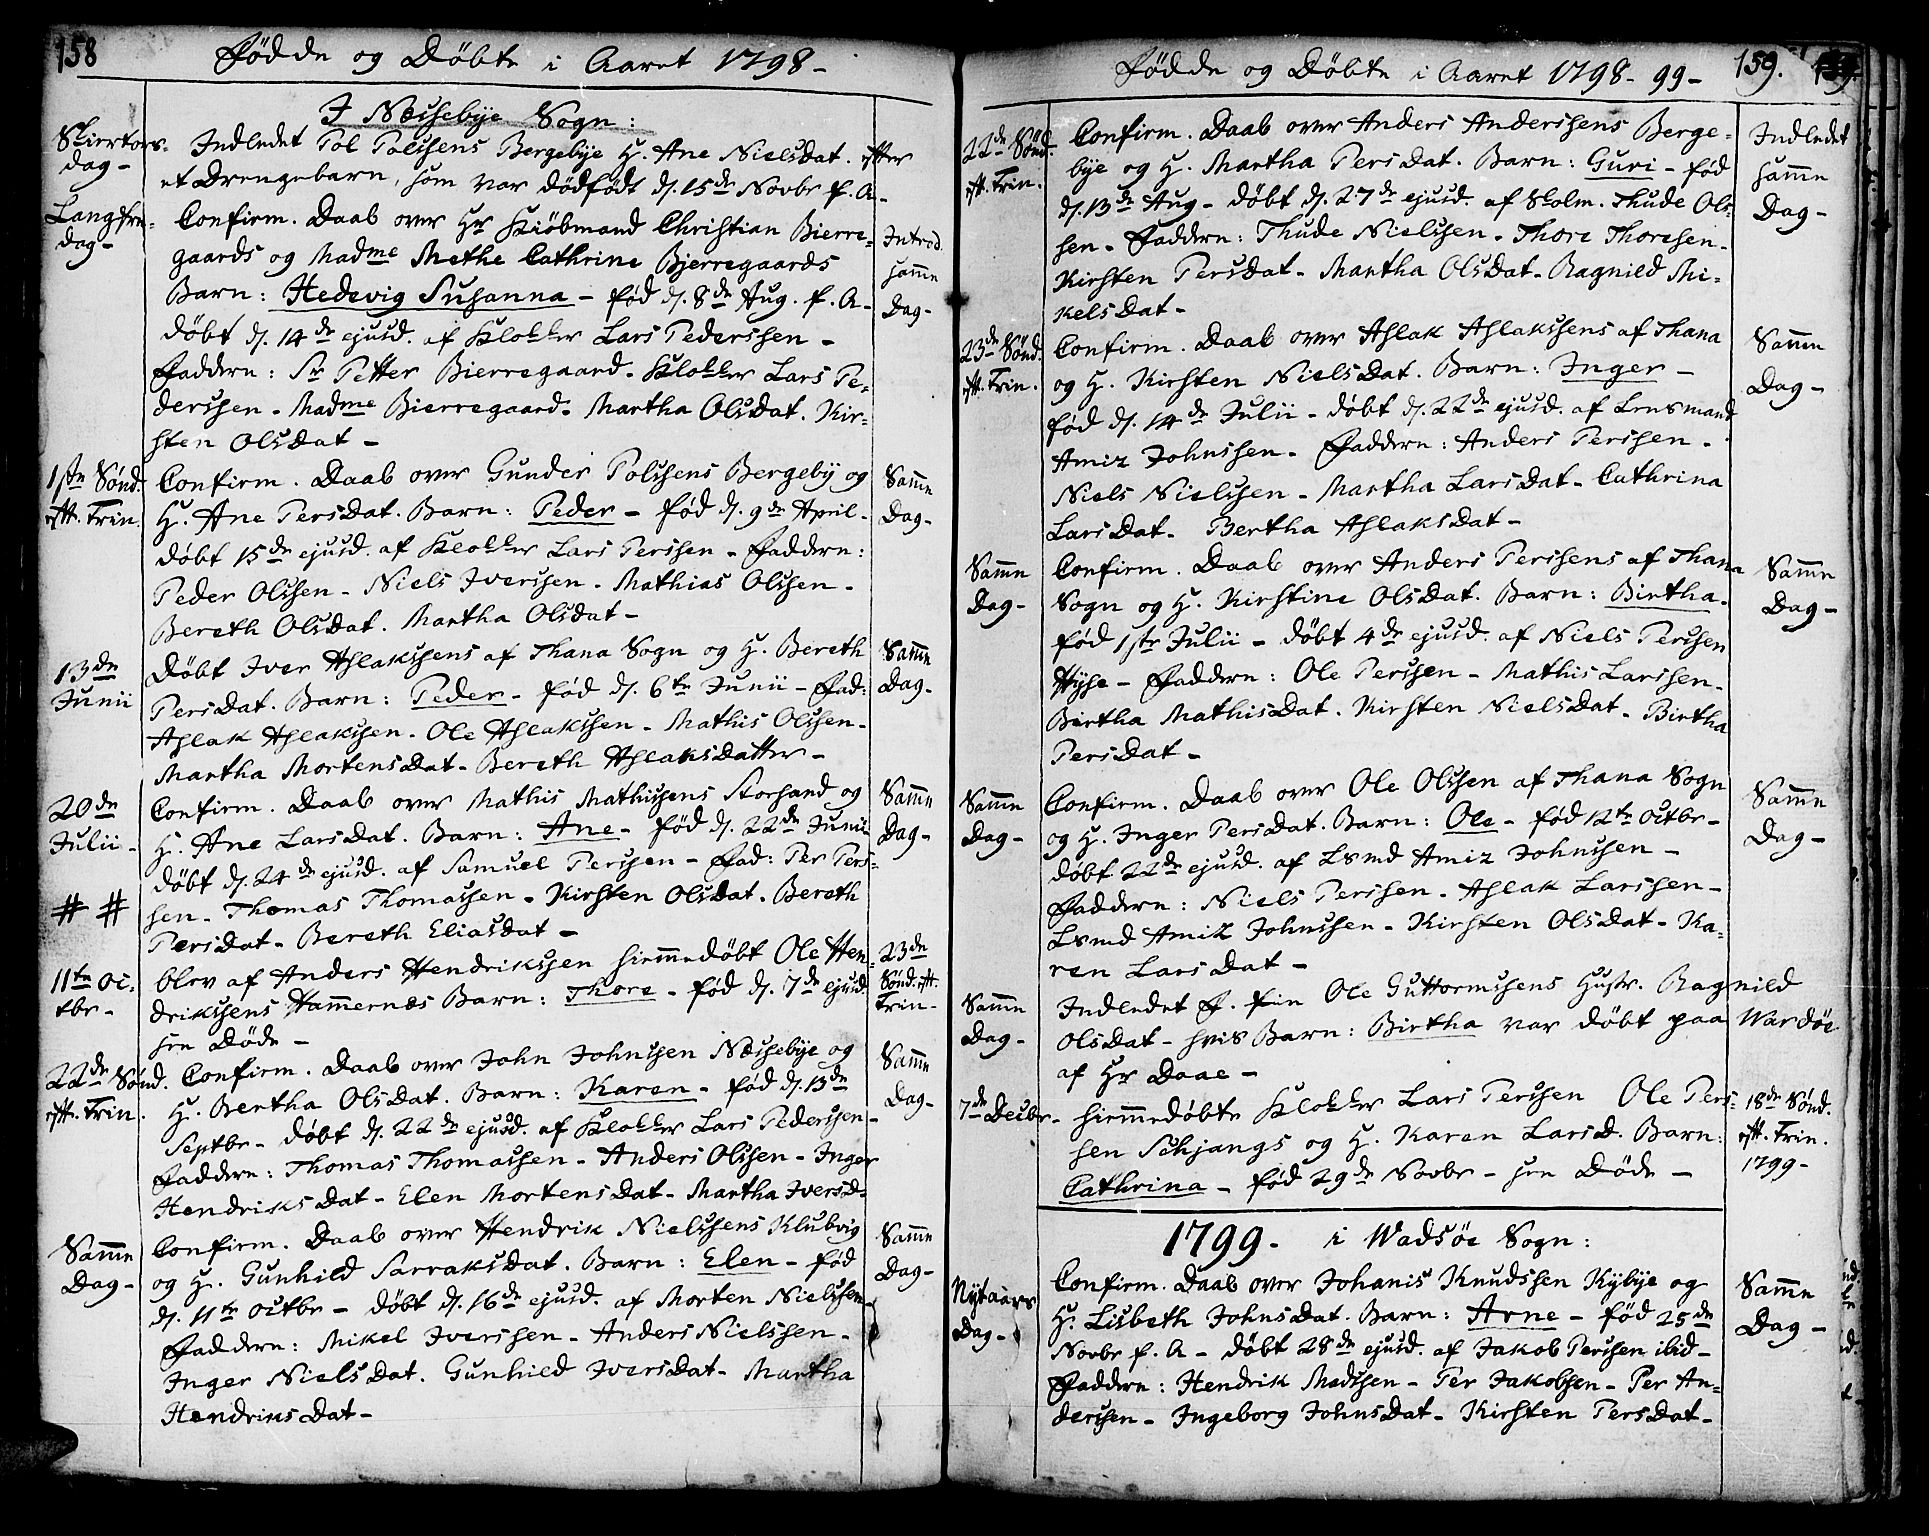 158
Fødde og Døbte i Aaret 1798-
I Næssebÿe Sogn:
Skiertors-
dag-
Indledet Pol Polssens Bergebÿe H. Ane NielsDat. efter
et Drengebarn, som var dødfødt d. 15de Novbr f. A-
Langfre-
dag-
Confirm. Daab over Hr Kiöbmand Christian Bierre-
gaards og Madme Methe Cathrine Bjerregaards
Barn: Hedevig Susanna - fød d. 8de Aug. f. A-
døbt d. 14de ejusd. af Klokker Lars Pederssen -
Faddere: Sr Petter Bierregaard. Klokker Lars Pe-
derssen - Madme Bierregaard. Martha OlsDat. Kir-
sten OlsDat -
Introd.
samme
Dag-
1ste Sønd.
eft. Trin.
Confirm. Daab over Gunder Polssens Bergebÿ og
H. Ane PersDat. Barn: Peder - fød d. 9de April-
døbt 15de ejusd. af Klokker Lars Perssen - Faddere:
Peder Olssen - Niels Iverssen - Mathias Olssen -
Bereth OlsDat. Martha OlsDat -
Samme
Dag-
13de
Junii
Døbt Iver Aslakssens af Thana Sogn og H. Bereth
PersDat. Barn: Peder - fød d. 6te Junii - Fad:
Aslak Aslakssen - Ole Aslakssen - Mathis Olssen -
Martha MortensDat - Bereth AslaksDatter -
Samme
Dag-
20de
Julii-
# #
Confirm. Daab over Mathis Mathissens Storsand og
H. Ane LarsDat. Barn: Ane - fød d. 22de Junii
døbt d. 24de ejusd. af Samuel Perssen - Fad: Per Pers-
sen - Thomas Thomassen - Kirsten OlsDat. Bereth
PersDat - Bereth EliasDat -
Samme
Dag-
11te Oc-
tbr-
blev af Anders Hendrikssen hiemmedøbt Ole Hen-
drikssens Hammernæs Barn: Thore - fød d. 7de ejusd.
sen Døde -
23de
Sønd. eft.
Trin-
22de Sønd.
eft. Trin.
Confirm. Daab over John Johnssen Næssebÿe og
H. Bertha OlsDat. Barn: Karen - fød d. 13de
Septbr - døbt d. 22de ejusd. af Klokker Lars Pederssen-
Faddere: Thomas Thomassen - Anders Olssen - Inger
HendriksDat - Elen MortensDat - Martha IversD-
Samme
Dag-
Samme
Dag-
Confirm. Daab over Hendrik Nielssens Klubvig
og H. Gunhild SarraksDat. Barn: Elen - fød
d. 11te Octbr - døbt d. 16de ejusd. af Morten Nielssen
Faddere: Mikel Iverssen - Anders Nielssen -
Inger NielsDat. Gunhild IversDat - Martha
HendriksDat -
Samme
Dag-
Fødde og Døbte i Aaret 1798- 99-
159.
22de Sønd.
eft. Trin.
Confirm. Daab over Anders Anderssens Berge-
bÿe og H. Martha PersDat. Barn: Guri - fød
d. 13de Aug - døbt d. 27de ejusd. af Skolm. Thude Ols-
sen - Faddere: Thude Nielssen - Thore Thoresen -
Kirsten PersDat - Martha OlsDat - Ragnild Mi-
kelsDat -
Indledet
samme
Dag-
23de Sønd.
eft. Trin.
Confirm. Daab over Aslak Aslakssens af Thana
og H. Kirsten NielsDat. Barn: Inger -
fød d. 14de Julii - døbt d. 22de ejusd. af Lensmand
Amiz Johnssen - Faddere: Anders Perssen -
Niels Nielssen - Martha LarsDat - Cathrina
LarsDat - Bertha AslaksDat -
Samme
Dag-
Samme
Dag-
Confirm. Daab over Anders Perssens af Thana
Sogn og H. Kirstine OlsDat. Barn: Birtha -
fød 1ste Julii - døbt 4de ejusd. af Niels Perssen
Hÿse - Faddere: Ole Perssen - Mathis Larssen -
Birtha MathisDat. Kirsten NielsDat - Birtha
PersDat -
Samme
Dag-
Samme
Dag-
Confirm. Daab over Ole Olssen af Thana Sogn
og H. Inger PersDat. Barn: Ole - fød 12te Octbr -
døbt 22de ejusd. af Lsmd Amiz Johnssen -
Faddere: Niels Perssen - Aslak Larssen -
Lsmd Amiz Johnssen - Kirsten OlsDat - Ka-
ren LarsDat -
Samme
Dag-
Samme
Dag-
Indledet Ole Guttormssens Hustr. Ragnild
OlsDat - hvis Barn: Birtha var døbt paa Wardöe
af Hr Daae -
7de Decbr-
hiemmedøbte Klokker Lars Perssen Ole Pers-
sen Schjangs og H. Karen LarsD. Barn:
Cathrina - fød 29de Novbr - sen Døde -
18de Sønd.
eft. Trin.
1799-
1799- i Wadsöe Sogn:
Nÿtaars
Dag-
Confirm. Daab over Johanis Knudssen Kÿbÿe og
H. Lisbeth JohnsDat. Barn: Arne - fød 25de
Novbr f. A - døbt 28de ejusd. af Jakob Perssen ibid-
Faddere: Hendrik Madssen - Per Jakobsen - Per An-
derssen - Ingeborg JohnsDat - Kirsten PersDat -
Samme
Dag-